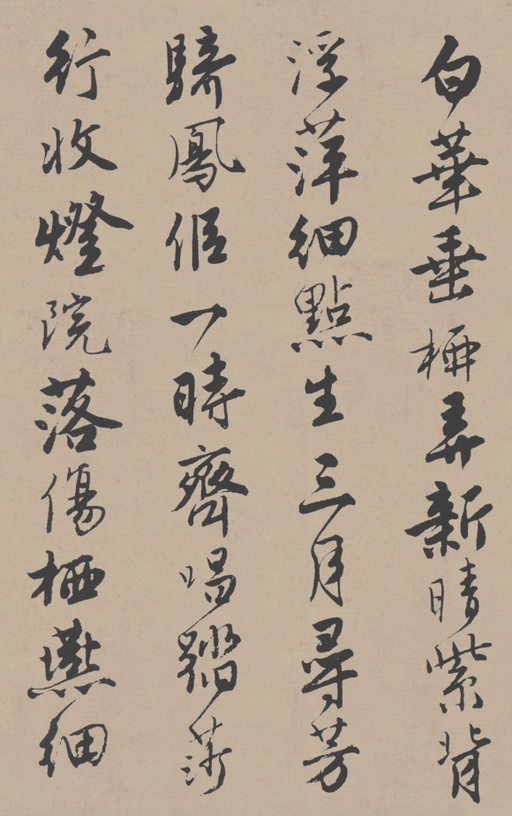 白華垂弄新晴紫背
浮萍細點生三月尋芳
騎鳳侶一時齊唱踏莎
行收燈院落傷栖燕細